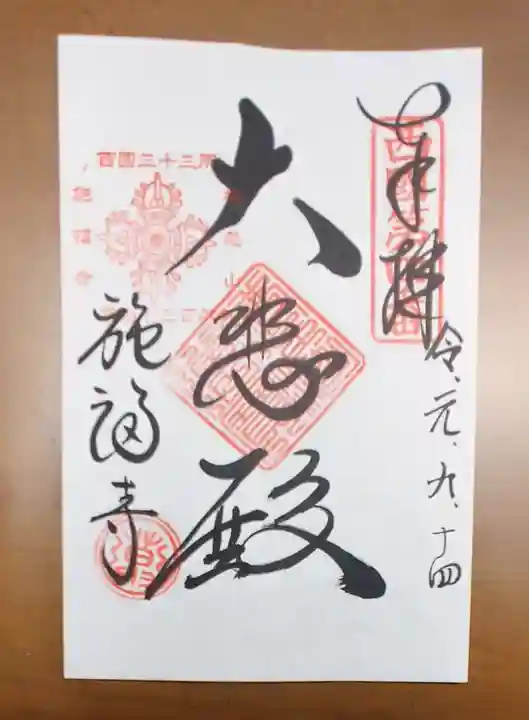 奉拝
令、元、九、十四
大悲殿
施福寺
西国三十三所